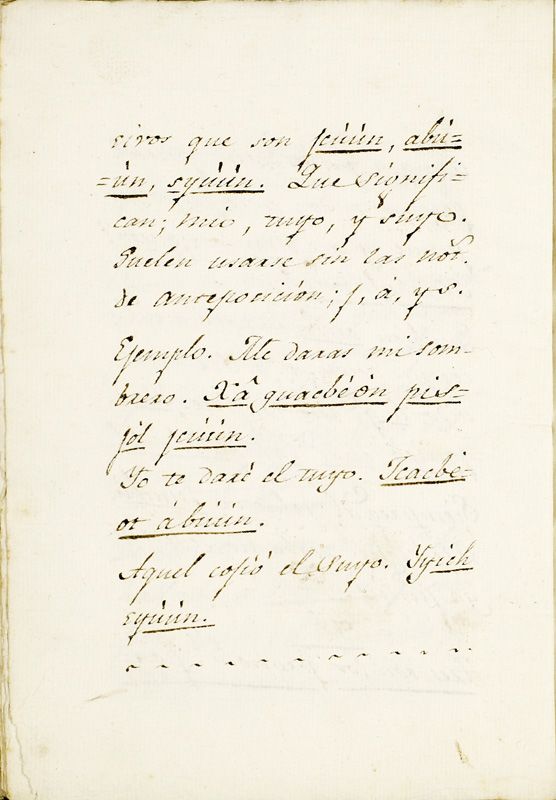 sivos que son jcúún, abú=
=ún, syúún. Que signifi=
can; mio, tuyo, y suyo.
Suelen usarse sin las not.
de anteposicion; j, á, y s.
Ejemplo. Me daras mi som-
brero. Xâ guacbéon pis-
jól jcúún.
Yo te daré el tuyo. Icacbé-
ot ábúún.
Aquel cojió el suyo. Iyich
syúún.